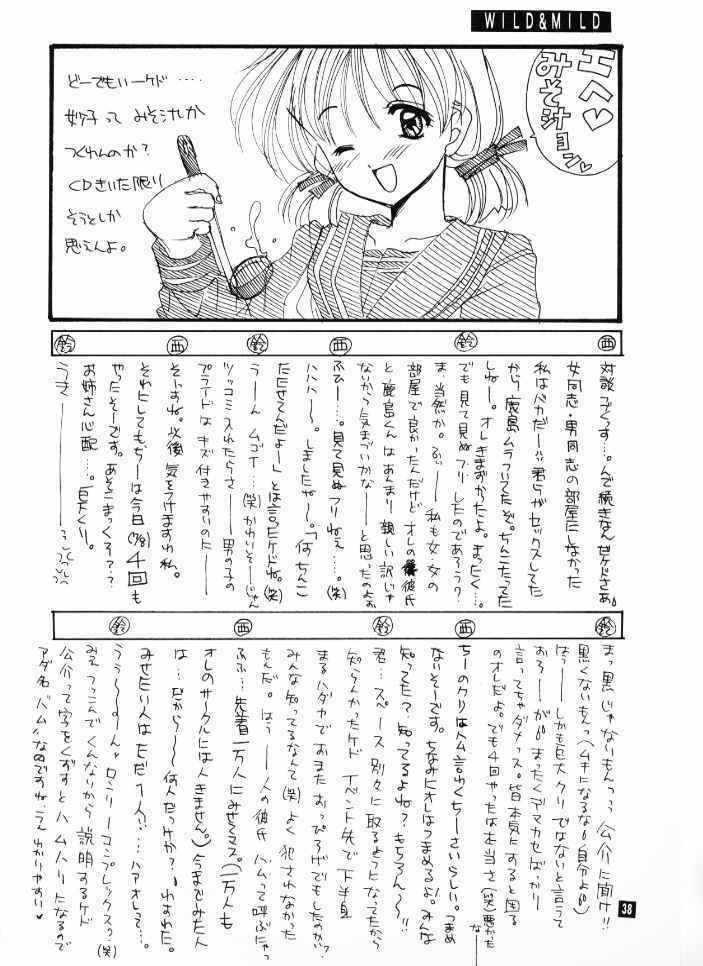 WILD&MILD
エヘ♡
みそ汁ョン♡
どーでもいーケド‥‥
妙子って みそ汁しか
つくれんのか?
CDきいた限り
そうとしか
思えんよ。
西
対談ごくっす…。んで続きなんぜケドさあ。
女同志・男同志の部屋だしなかった
私はバカだー
君らがセックスしてた
鈴
しねー。オレきまずかったよ。まったく…。
でも見て見ぬフリしたのであろう?
ま、当然か。ふぃー私も女・女の
部屋で良かったんだけどオレの彼氏
と鹿島くんはあんまり親しい訳じゃ
ないから気まづいかなーと思ったのよぉ
西
ふひー…。見て見ぬフリねぇ…。(笑)
ハハハー〜。しましたねー。「何ちんこ
たたせてんだよー」とは言ったケドね。(笑)
鈴
うーん ムゴイ…(笑)かわいそーじゃん
ツッコミ入れたらさー男の子の
プライドは キズ付きやすいのだー
西
そーすね。以後 気をつけますわ私。
それにしてもちーは今日 4回も
やったそーです。あそこまっくろ??
お姉さん心配…。巨大くり。
鈴
うきー
鈴
まっ黒じゃないもんっっ 公介に聞け!!
黒くないもんっ(ムキになるな自分よ)
はぅーしかも巨大クリではないと言って
おろーがまったくデマカセばっかり
言ってちゃダメっス。皆本気にすると困る
のオレだよ。でも4回やったは本当さ(笑)悪かったなー
西
ちーのクリはハム言わくちーさいらしい。つまめ
ないそーです。ちなみにオレはつまめるよ!みんな
知ってた?知ってるよね?もちろん〜〜!!
鈴
君… スペース別々に取るようになってたから
知らんかったケド イベント先で下半身
まるハダカでおまたおっぴろげでもしたのかい?
みんな知ってるなんて(笑)よく犯されなかった
もんだ。はぅー人の彼氏ハムって呼ぶにゃっ
西
ふふ…先着一万人にみせてマス。(一万人も
オレのサークルには人きません。)今までみた人
は…だから〜〜何人だっけか?わすれた。
みせたい人はただ1人♡…ハァオレって…。
鈴
うう〜〜。
ロリーコンプレックス?(笑)
みぇ つっこんでくんないから説明するケド
公介って字をくずすとハムハリになるので
アダ名"ハム"なのですね、うんわかりやすい♥
38